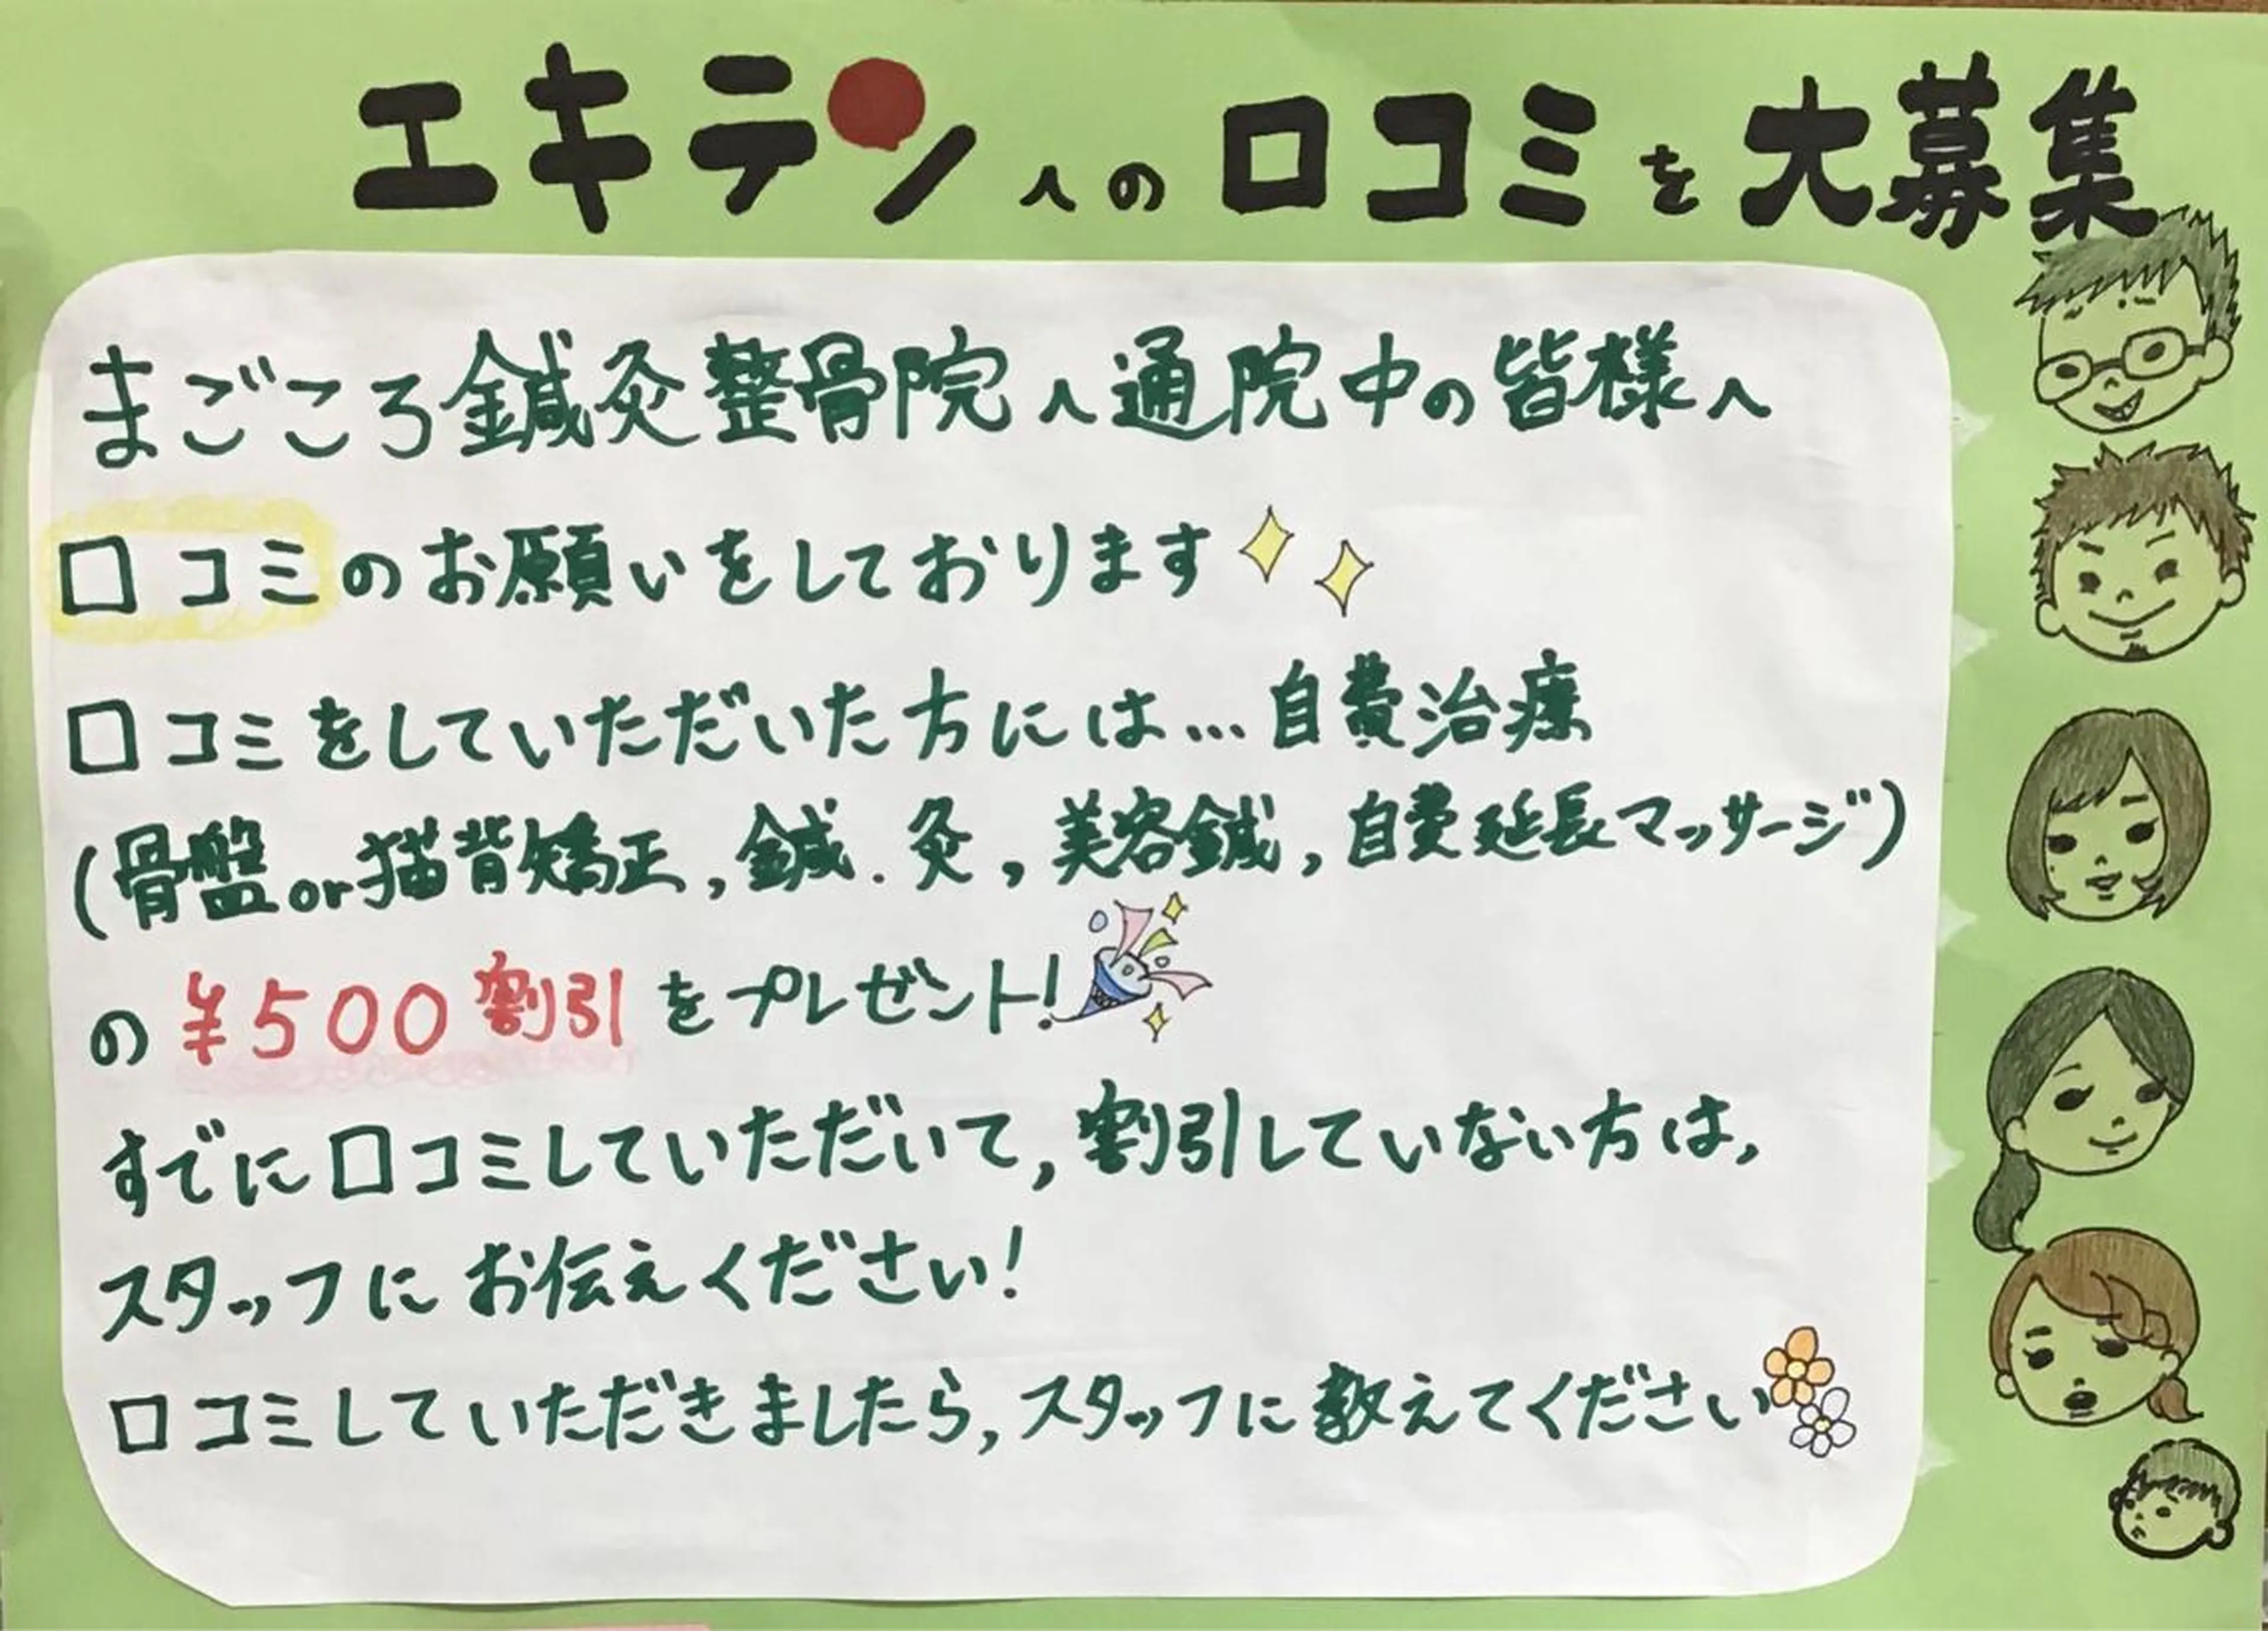 エキテンへの口コミを大募集
まごころ鍼灸整骨院へ通院中の皆様へ
口コミのお願いをしております
口コミをしていただいた方には…自費治療
(骨盤or猫背矯正,鍼.灸,美容鍼,自費延長マッサージ)
の¥500割引をプレゼント!
すでに口コミしていただいて,割引していない方は,
スタッフにお伝えください!
口コミしていただきましたら,スタッフに教えてください